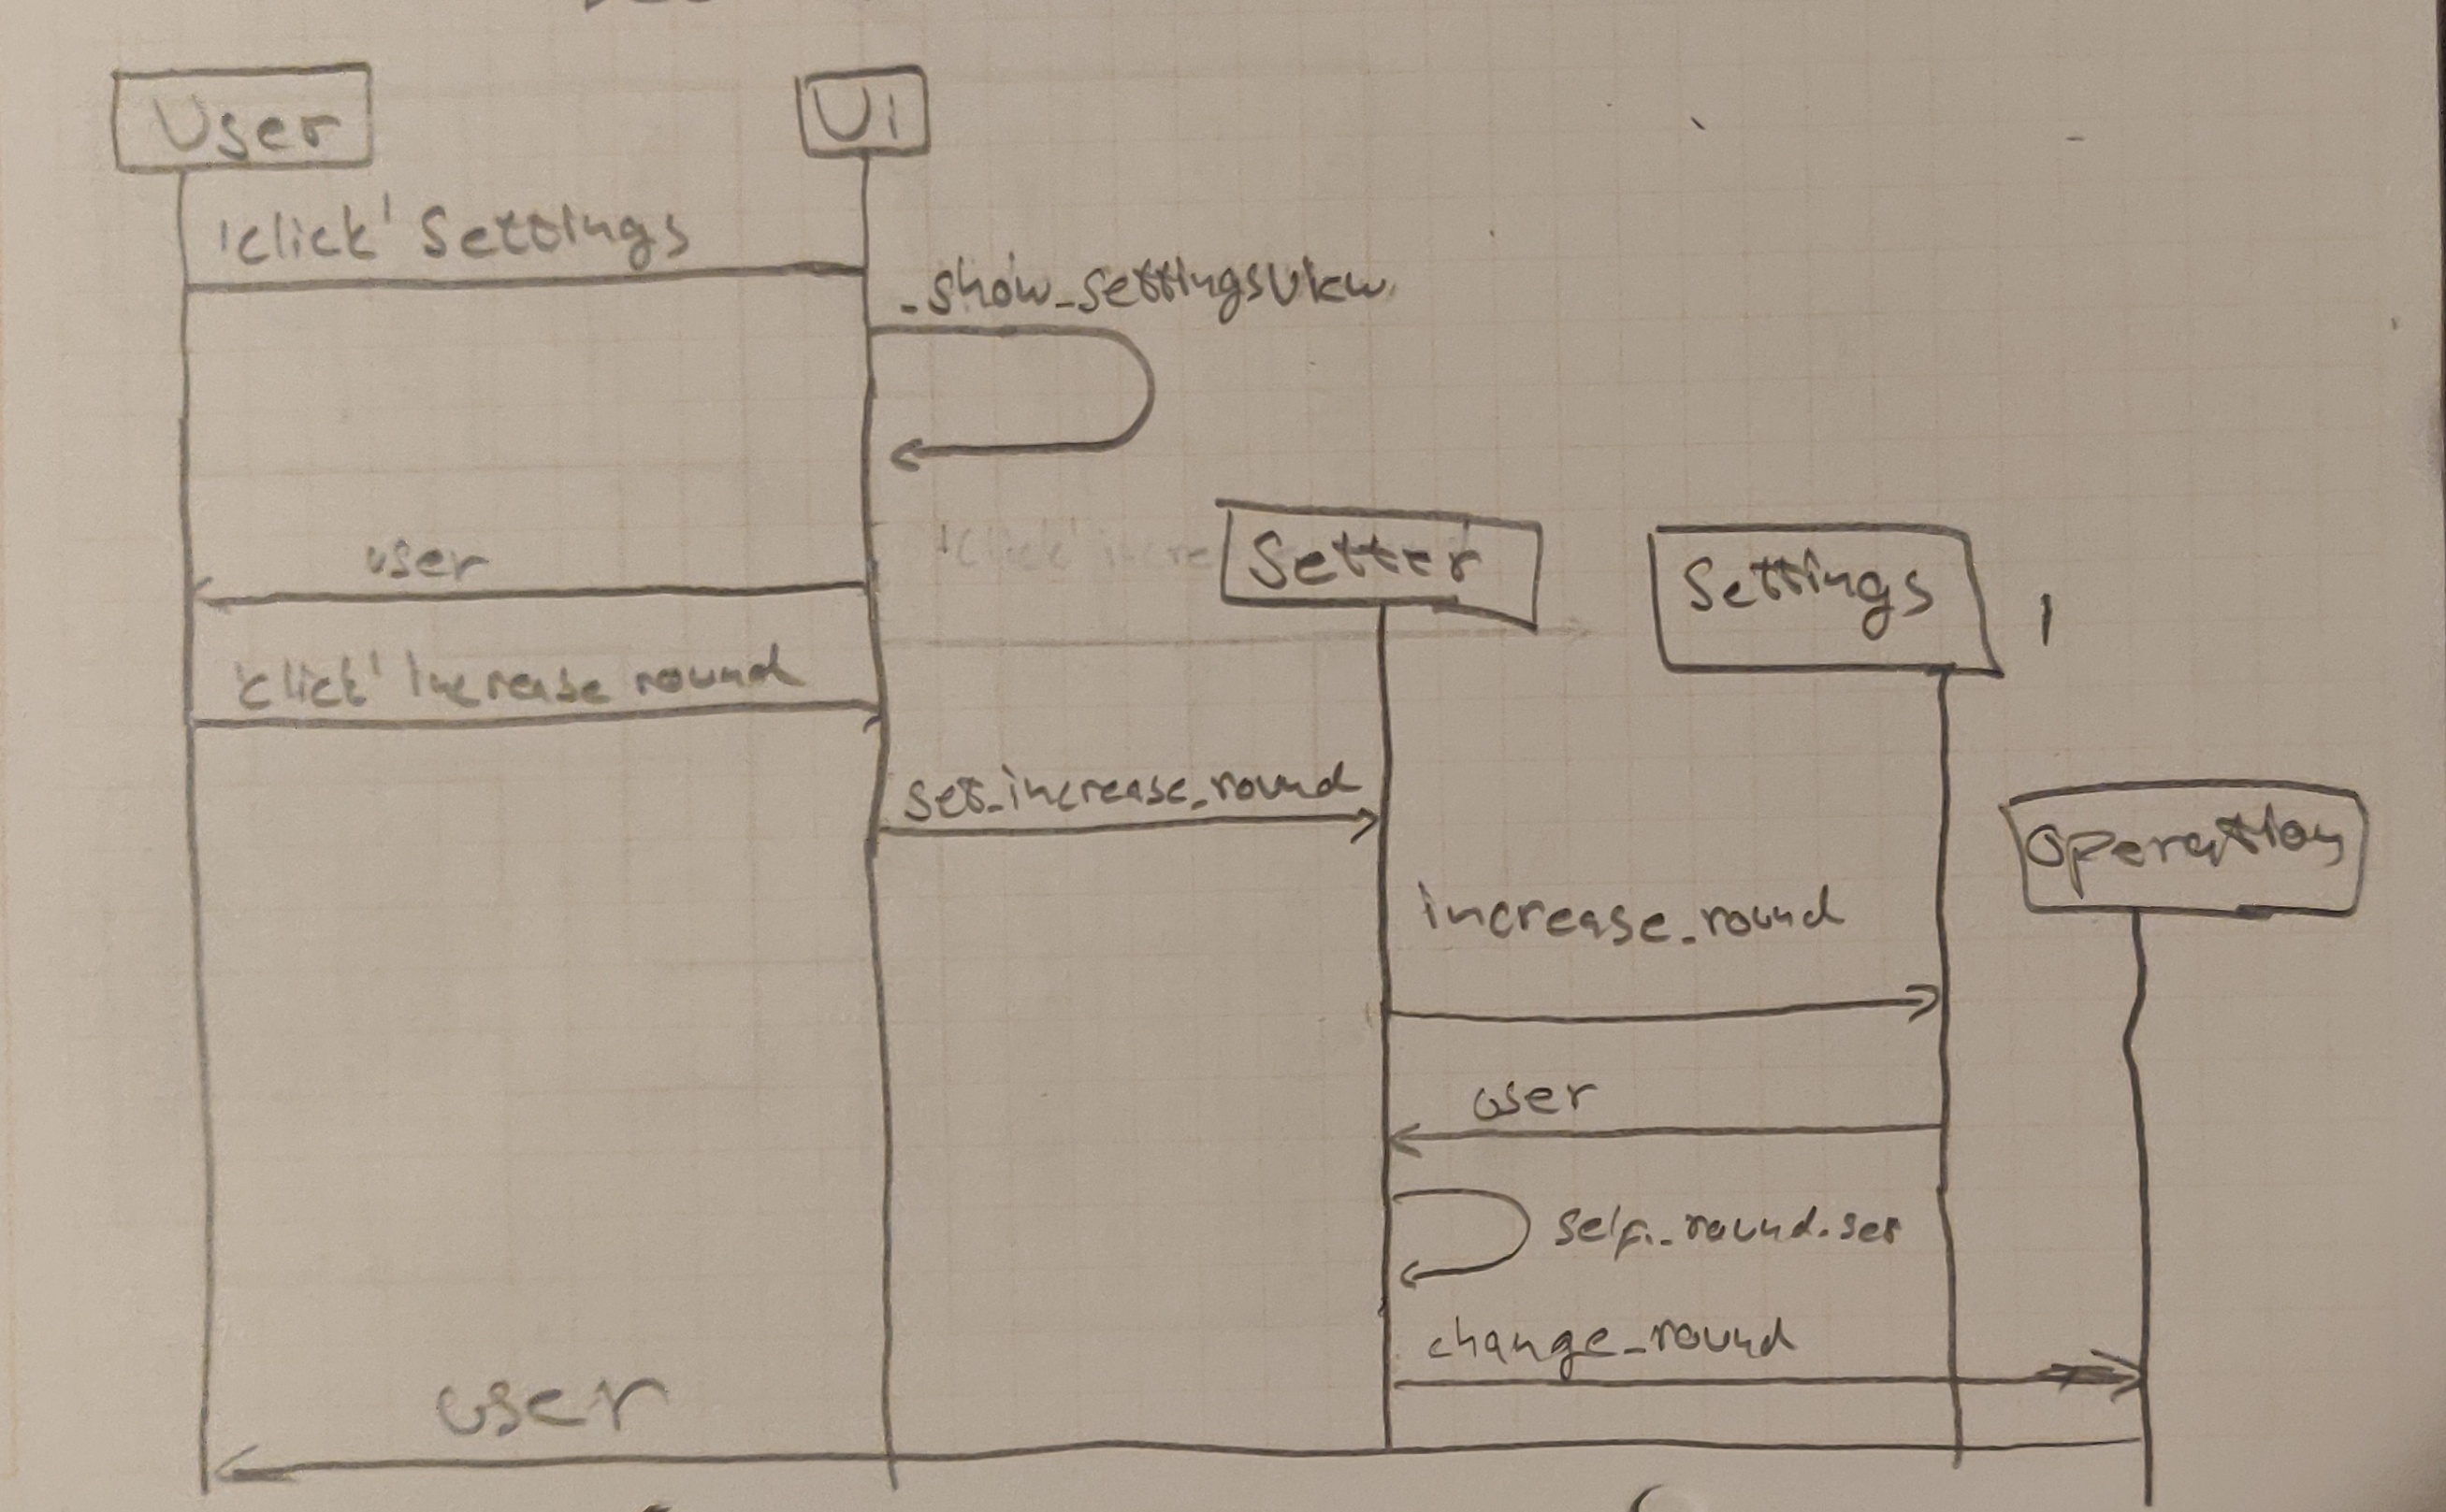 User
UI
'click' Settings
_show_settingsView
user
'click' incre
Setter
Settings
'click' increase round
set_increase_round
Operation
increase_round
user
self._round.set
change_round
user